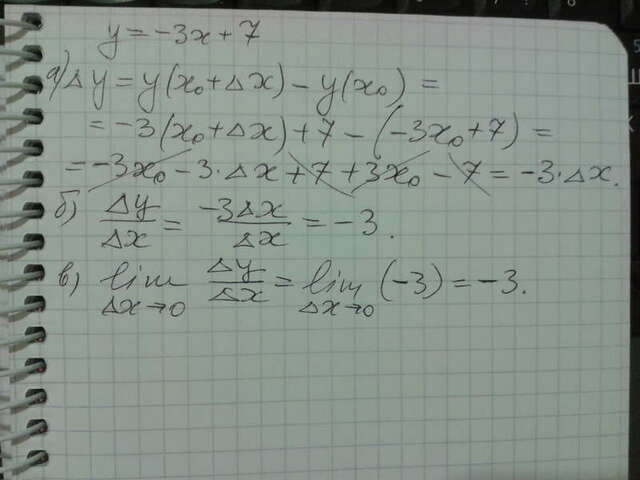 y = -3x + 7
а) Δy = y(x₀ + Δx) - y(x₀) =
= -3(x₀ + Δx) + 7 - (-3x₀ + 7) =
= -3x₀ - 3·Δx + 7 + 3x₀ - 7 = -3·Δx.
б) Δy/Δx = -3Δx/Δx = -3.
в) lim Δx→0 Δy/Δx = lim Δx→0 (-3) = -3.